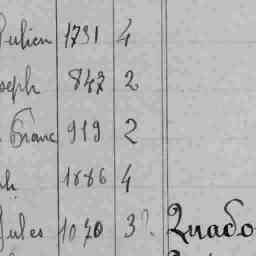 Julien 1731 4
oseph 847 2
Franc 919 2
ph 1886 4
Jules 1070 3?. Quado